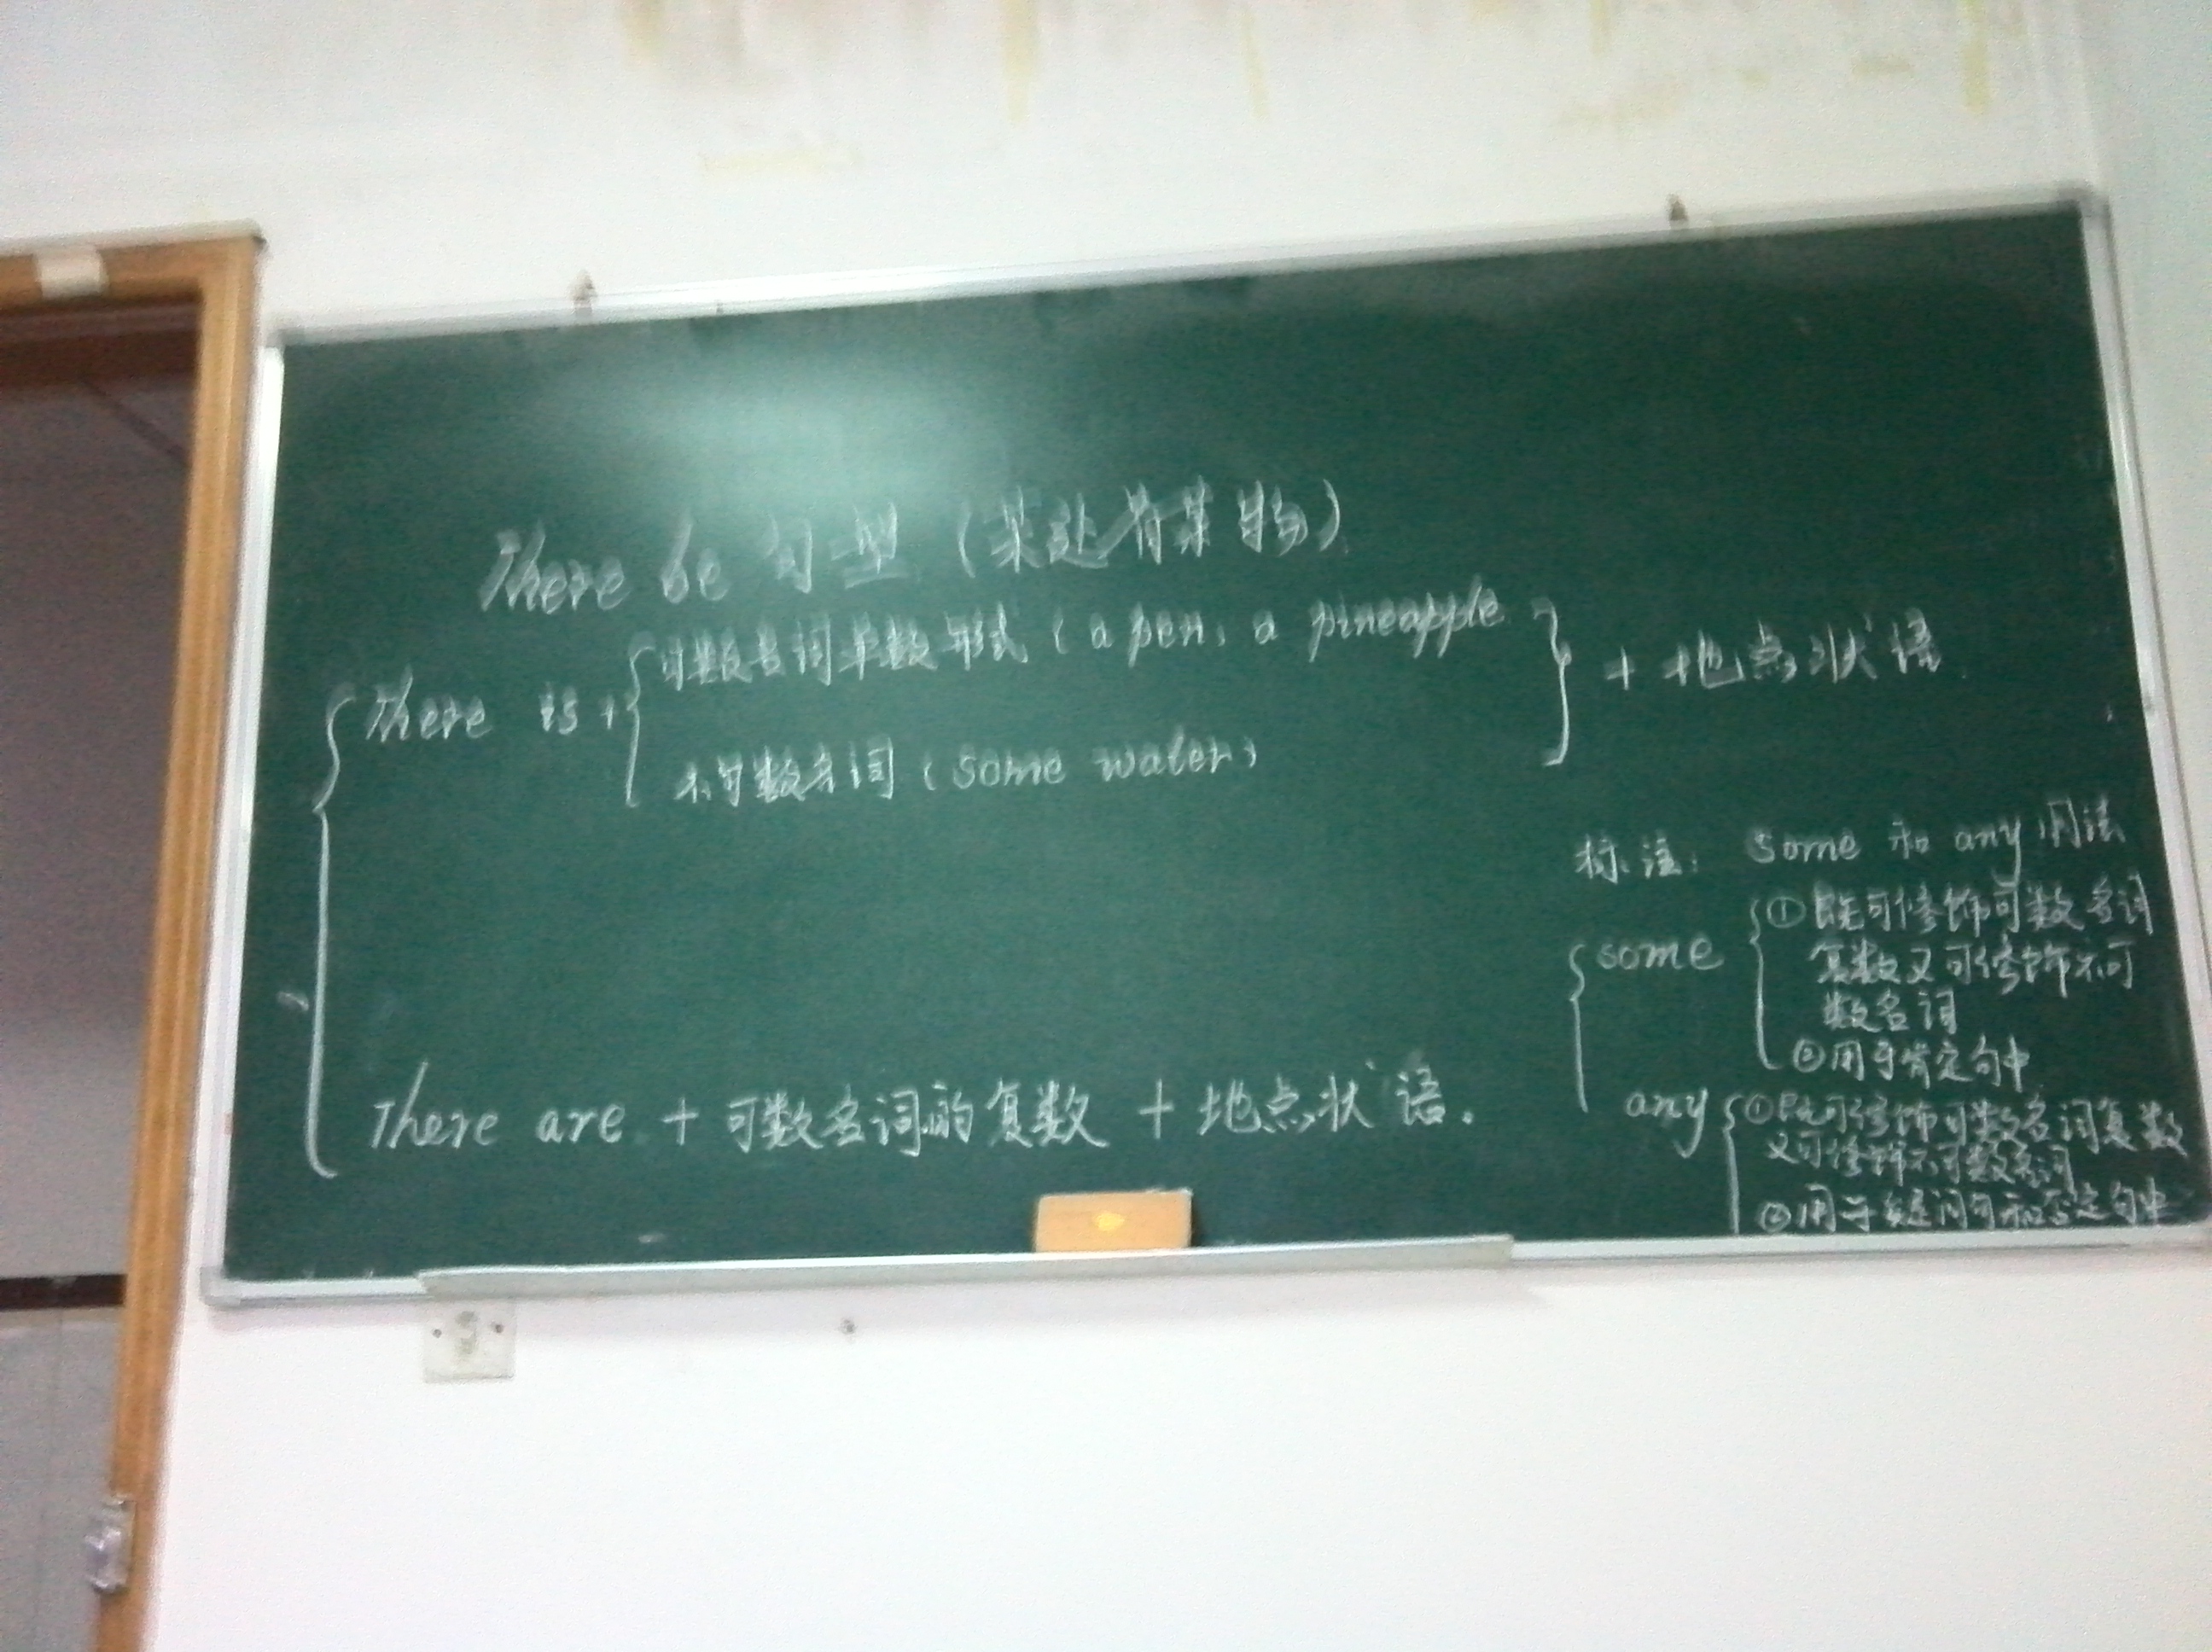 There be 句型 (某处有某物)
There is + 可数名词单数形式 (a pen, a pineapple
不可数名词 (some water)
+ 地点状语
There are + 可数名词的复数 + 地点状语.
标注: some 和 any 用法
some ①既可修饰可数名词
复数又可修饰不可
数名词
②用于肯定句中
any ①既可修饰可数名词复数
又可修饰不可数名词
②用于疑问句和否定句中